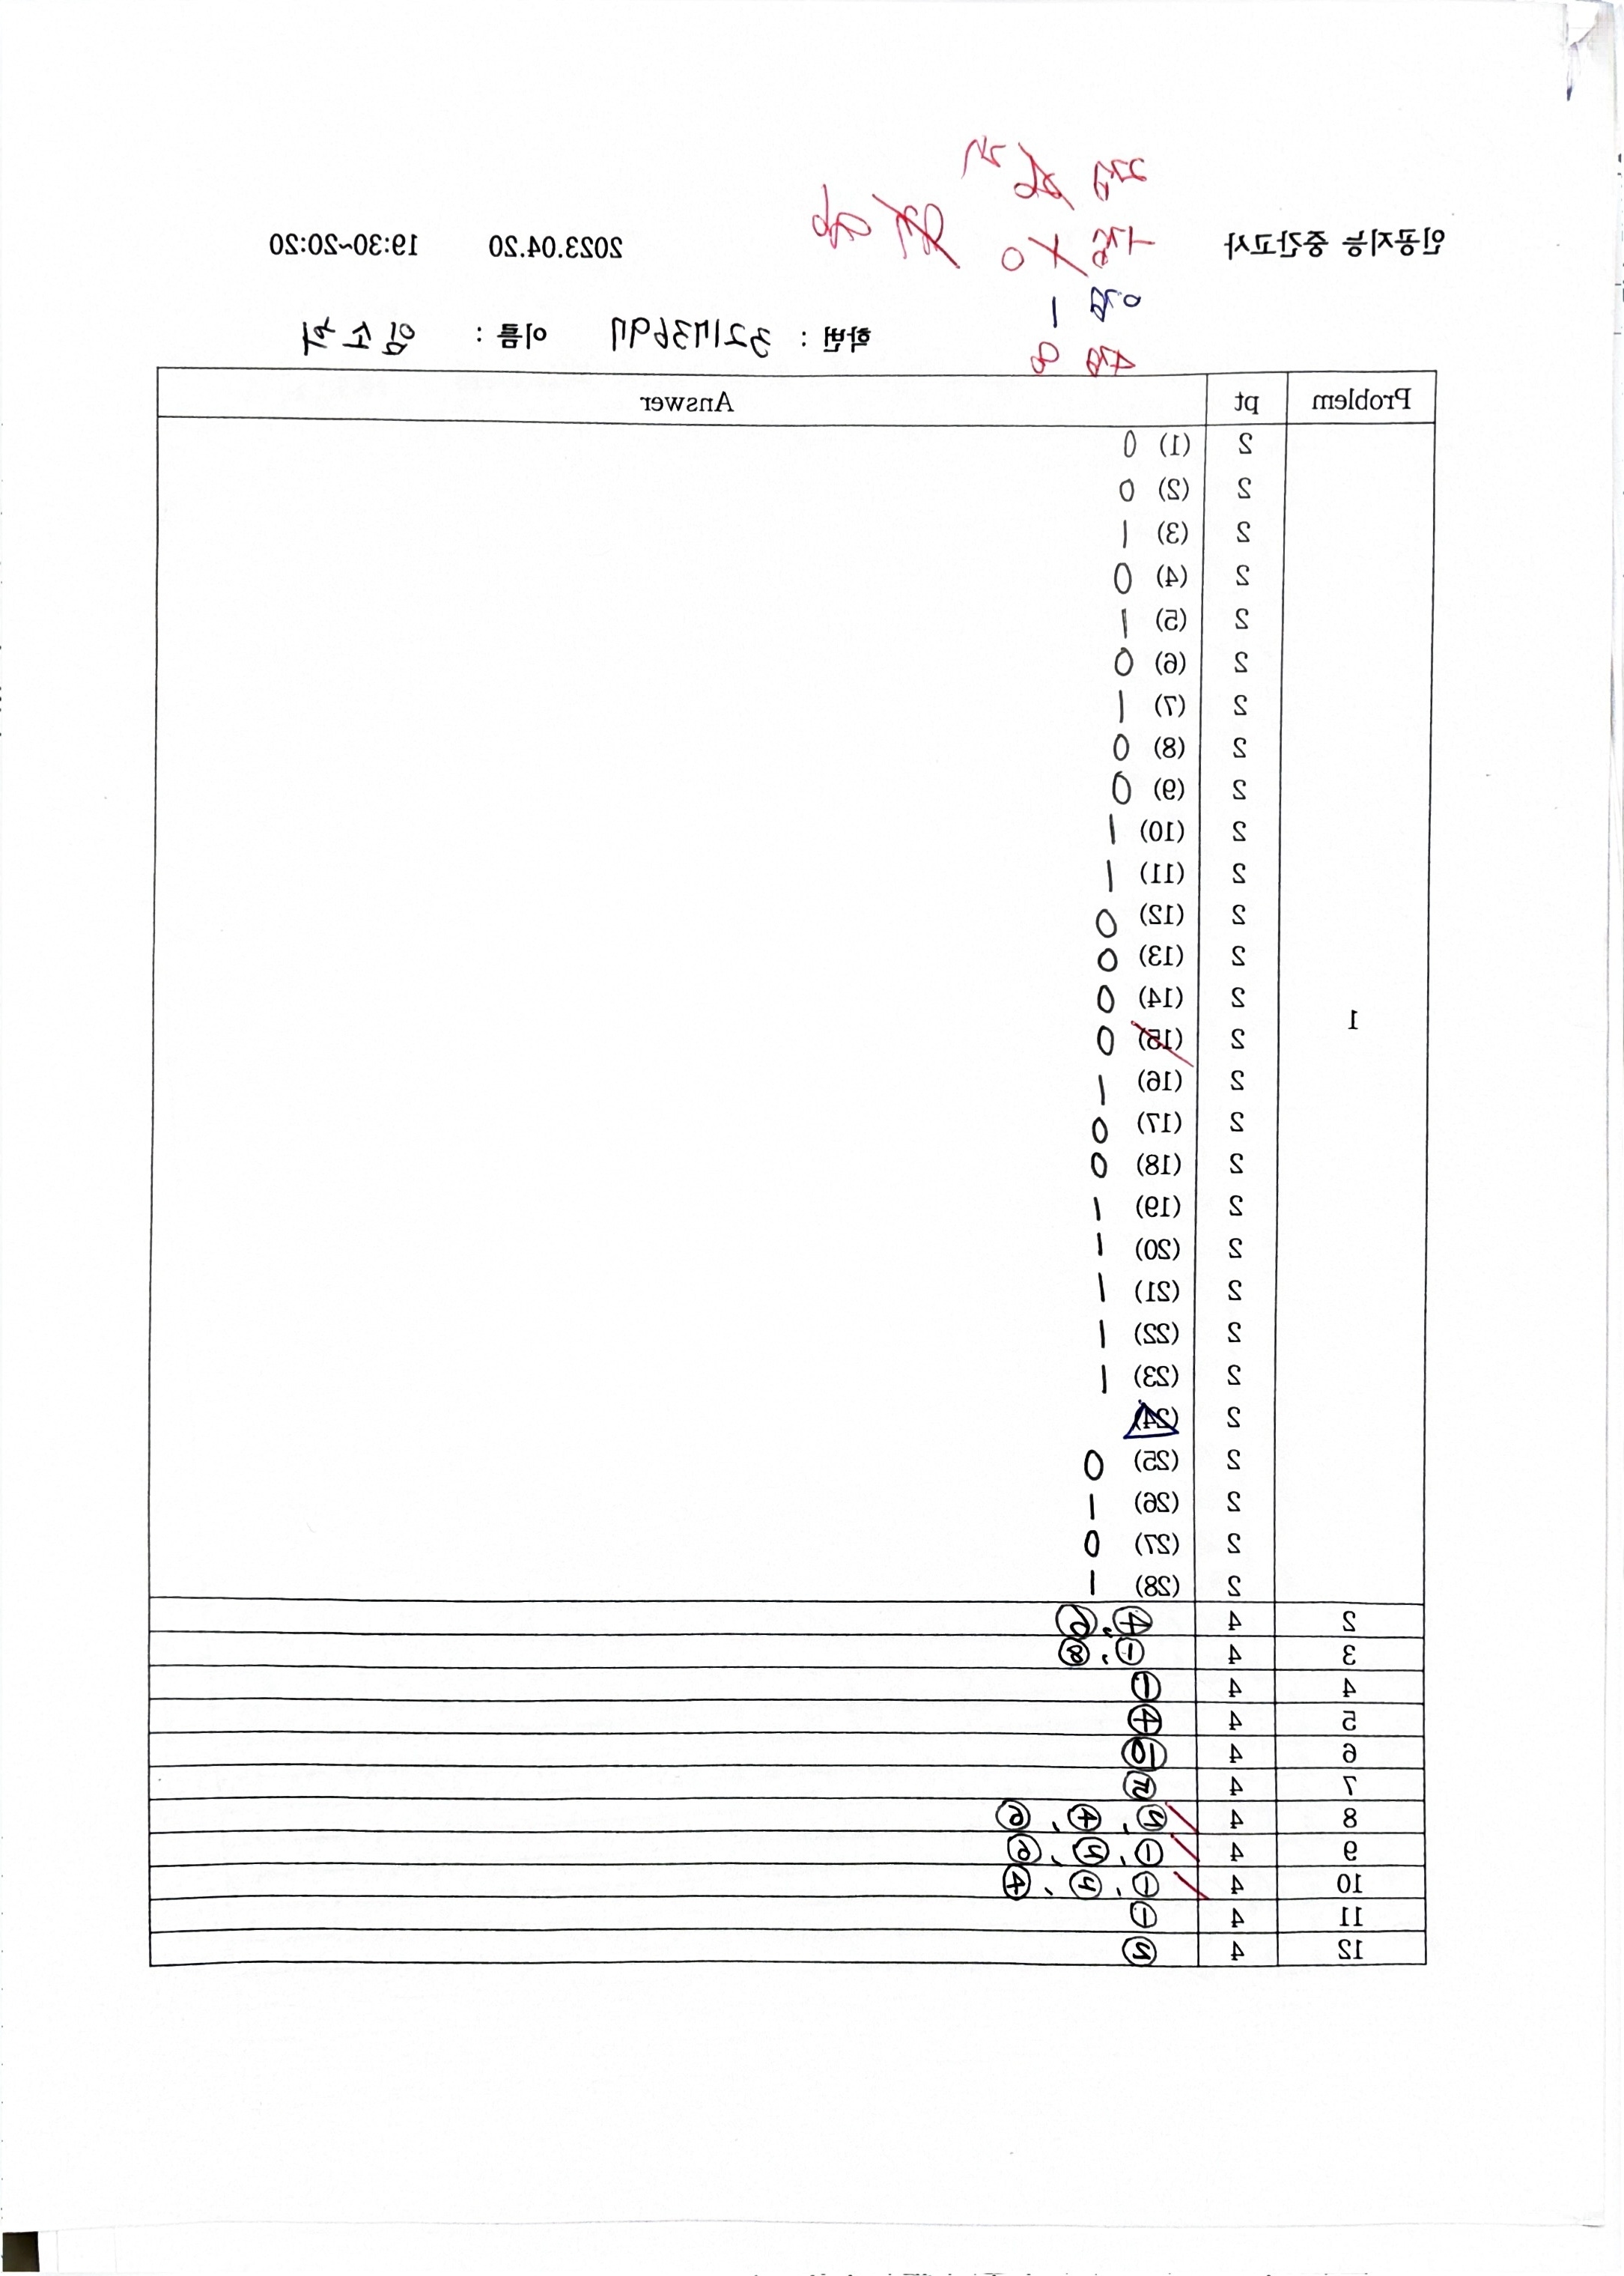 인공지능 중간고사 2023.04.20 19:30~20:20
0점 1
4점
학번 : 32173697 이름 : 임소희
Problem pt Answer
1
2 (1) 0
2 (2) 0
2 (3) 1
2 (4) 0
2 (5) 1
2 (6) 0
2 (7) 1
2 (8) 0
2 (9) 0
2 (10) 1
2 (11) 1
2 (12) 0
2 (13) 0
2 (14) 0
2 (15) 0
2 (16) 1
2 (17) 0
2 (18) 0
2 (19) 1
2 (20) 1
2 (21) 1
2 (22) 1
2 (23) 1
2 (24)
2 (25) 0
2 (26) 1
2 (27) 0
2 (28) 1
2 4 ④, ⑥
3 4 ①, ⑧
4 4 ①
5 4 ④
6 4 ⑩
7 4
8 4 ④, ⑥
9 4 ①, ⑥
10 4 ①, ④
11 4 ①
12 4 ②